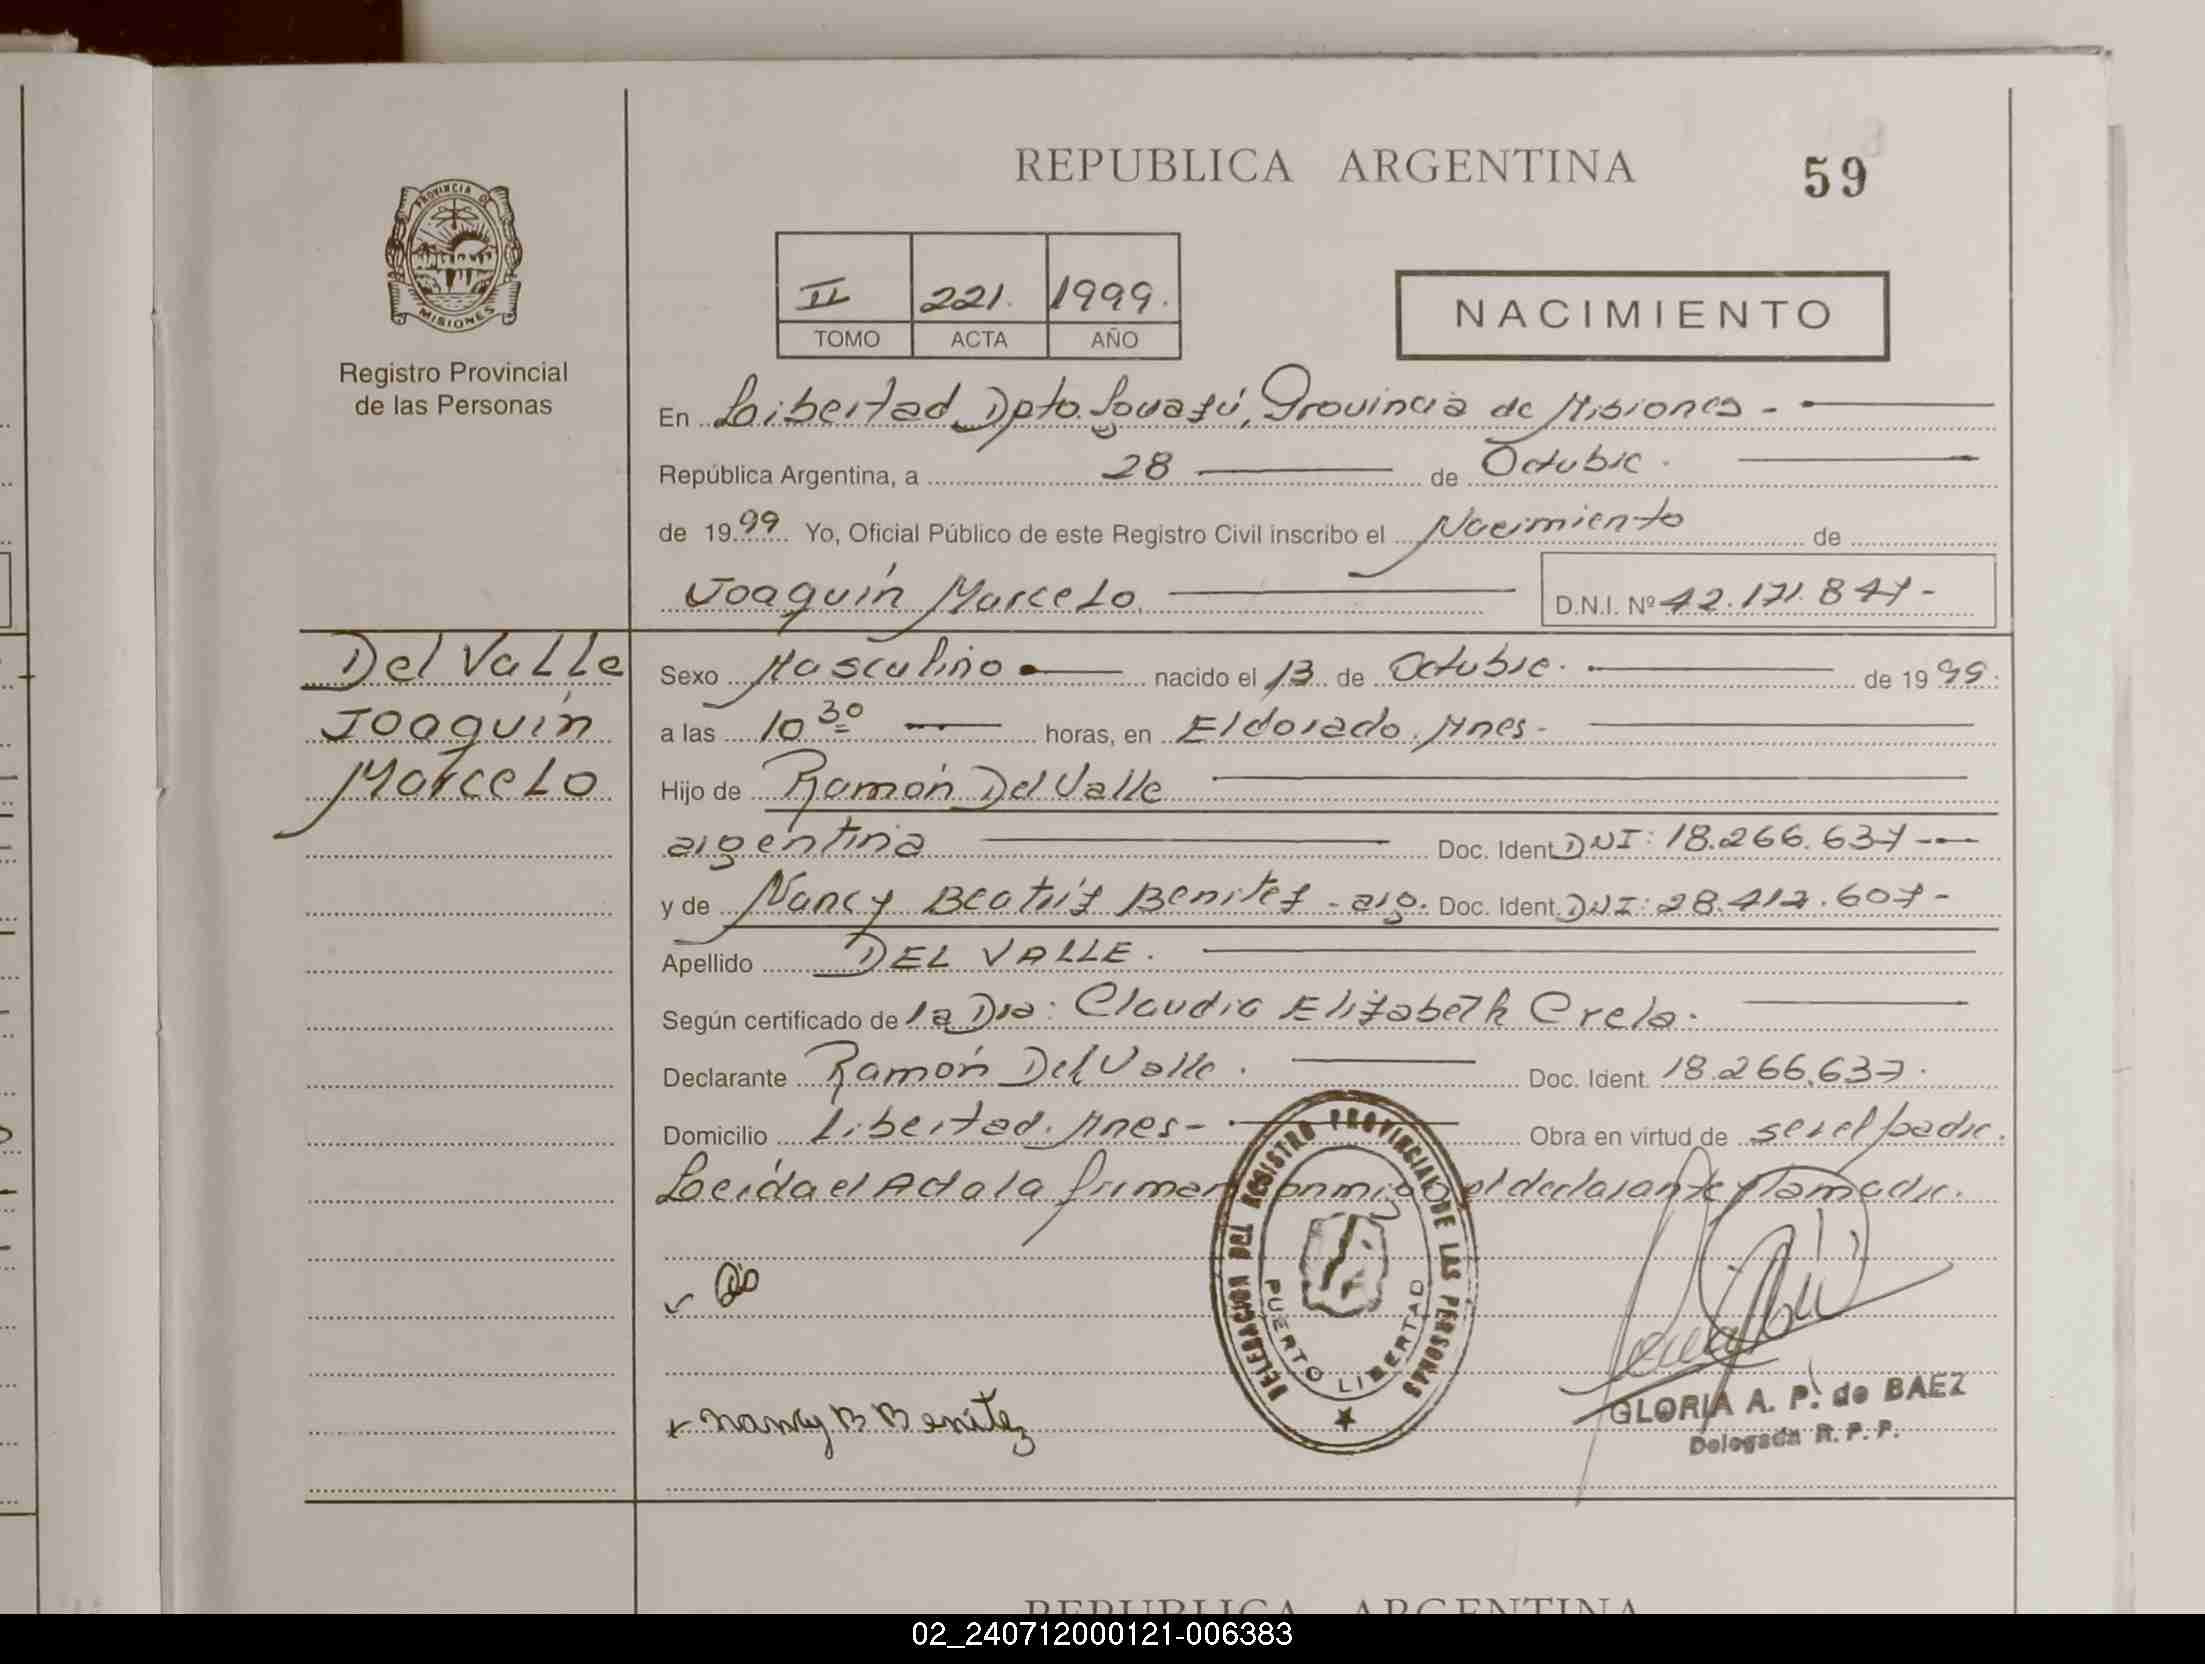 PROVINCIA DE
MISIONES
Registro Provincial
de las Personas
REPUBLICA ARGENTINA
59
II 221. 1999.
TOMO ACTA AÑO
NACIMIENTO
En Libertad, Dpto. Iguazú, Provincia de Misiones -
República Argentina, a 28 de Octubre.
de 1999 Yo, Oficial Público de este Registro Civil inscribo el Nacimiento de
Joaquín Marcelo D.N.I. Nº 42.171.847-
Del Valle
Joaquín
Marcelo
Sexo Masculino nacido el 13 de Octubre. de 1999.
a las 10 30 horas, en Eldorado. Mnes-
Hijo de Ramón Del Valle
argentina Doc. Ident. DNI: 18.266.637-
y de Nancy Beatriz Benitez - arg. Doc. Ident. DNI: 28.412.607-
Apellido DEL VALLE.
Según certificado de la Dra: Claudia Elizabeth Crela.
Declarante Ramón Del Valle. Doc. Ident. 18.266.637.
Domicilio Libertad. Mnes- Obra en virtud de ser el padre.
Leída el Acta la firman conmigo el declarante y la madre.
DELEGACION DEL REGISTRO PROVINCIAL DE LAS PERSONAS
PUERTO LIBERTAD
Nancy B Benítez
GLORIA A. P. de BAEZ
Delegada R. P. P.
REPUBLICA ARGENTINA
02_240712000121-006383